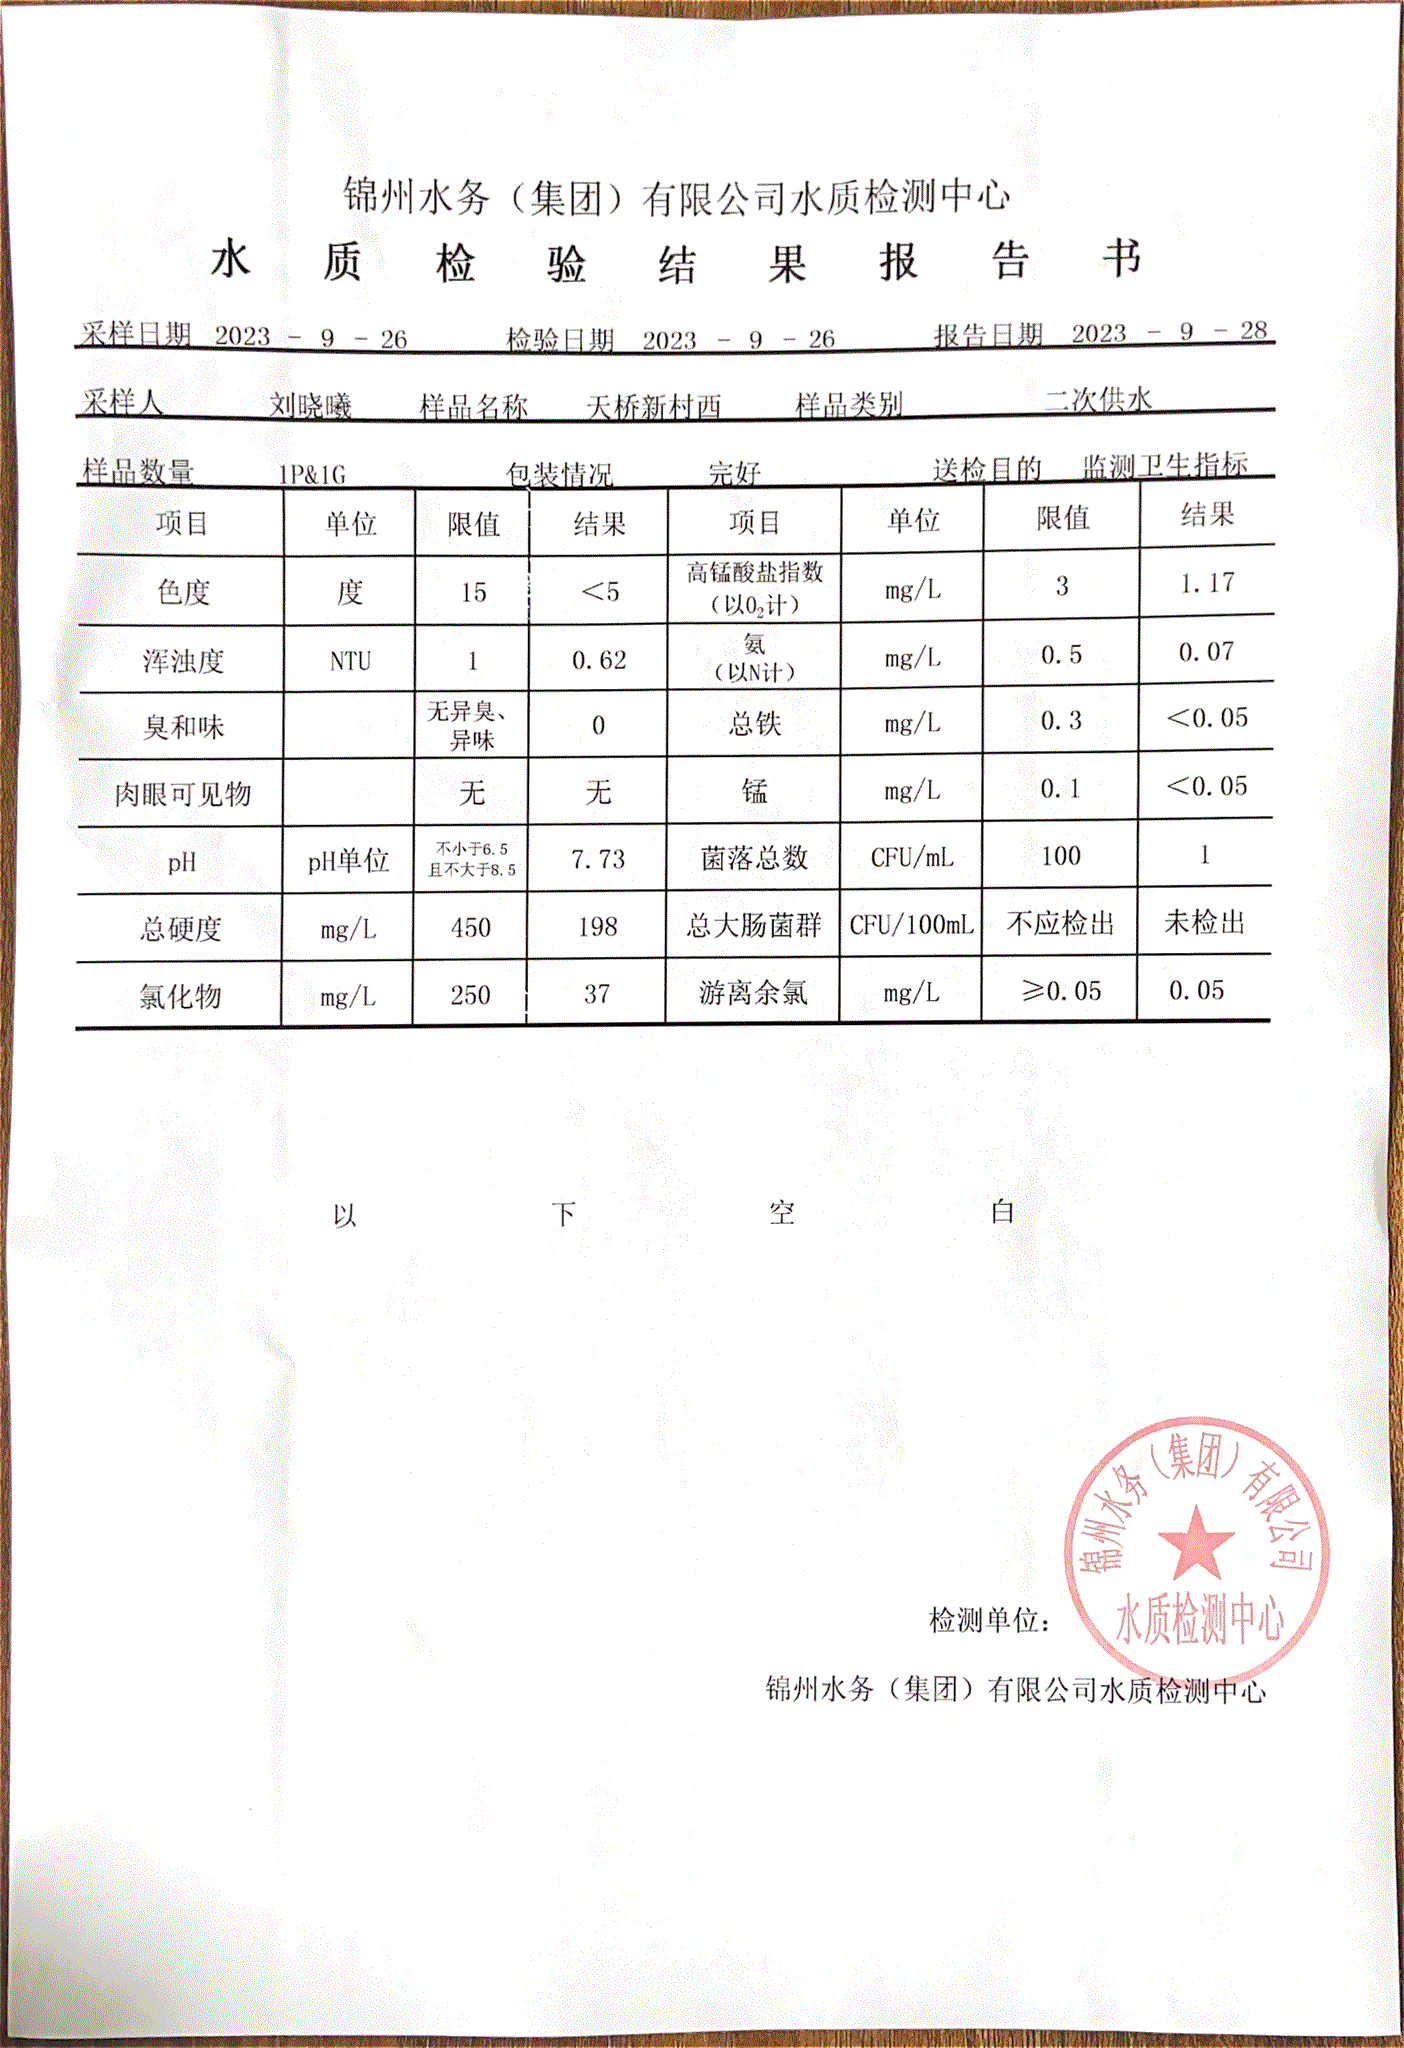 锦州水务（集团）有限公司水质检测中心
水质检验结果报告书
采样日期 2023 - 9 - 26 检验日期 2023 - 9 - 26 报告日期 2023 - 9 - 28
采样人 刘晓曦 样品名称 天桥新村西 样品类别 二次供水
样品数量 1P&1G 包装情况 完好 送检目的 监测卫生指标
项目 单位 限值 结果 项目 单位 限值 结果
色度 度 15 <5 高锰酸盐指数（以O₂计） mg/L 3 1.17
浑浊度 NTU 1 0.62 氨（以N计） mg/L 0.5 0.07
臭和味 无异臭、异味 0 总铁 mg/L 0.3 <0.05
肉眼可见物 无 无 锰 mg/L 0.1 <0.05
pH pH单位 不小于6.5且不大于8.5 7.73 菌落总数 CFU/mL 100 1
总硬度 mg/L 450 198 总大肠菌群 CFU/100mL 不应检出 未检出
氯化物 mg/L 250 37 游离余氯 mg/L ≥0.05 0.05
以下空白
锦州水务（集团）有限公司
水质检测中心
检测单位：
锦州水务（集团）有限公司水质检测中心